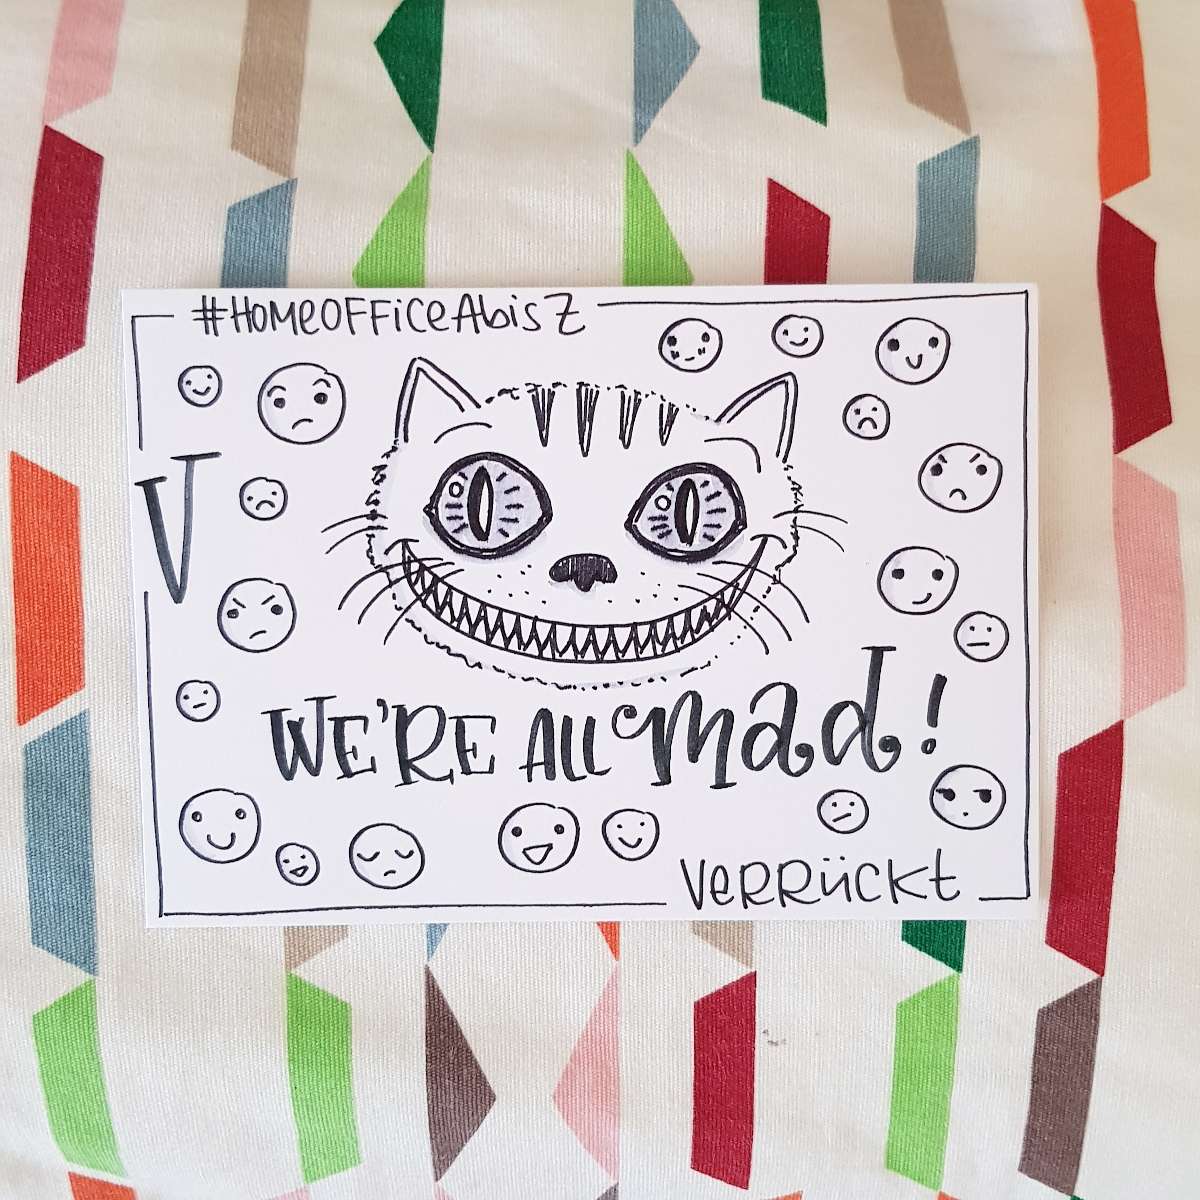 #HomeOfficeAbisZ
V
WE'RE All mad!
VERRüCKt